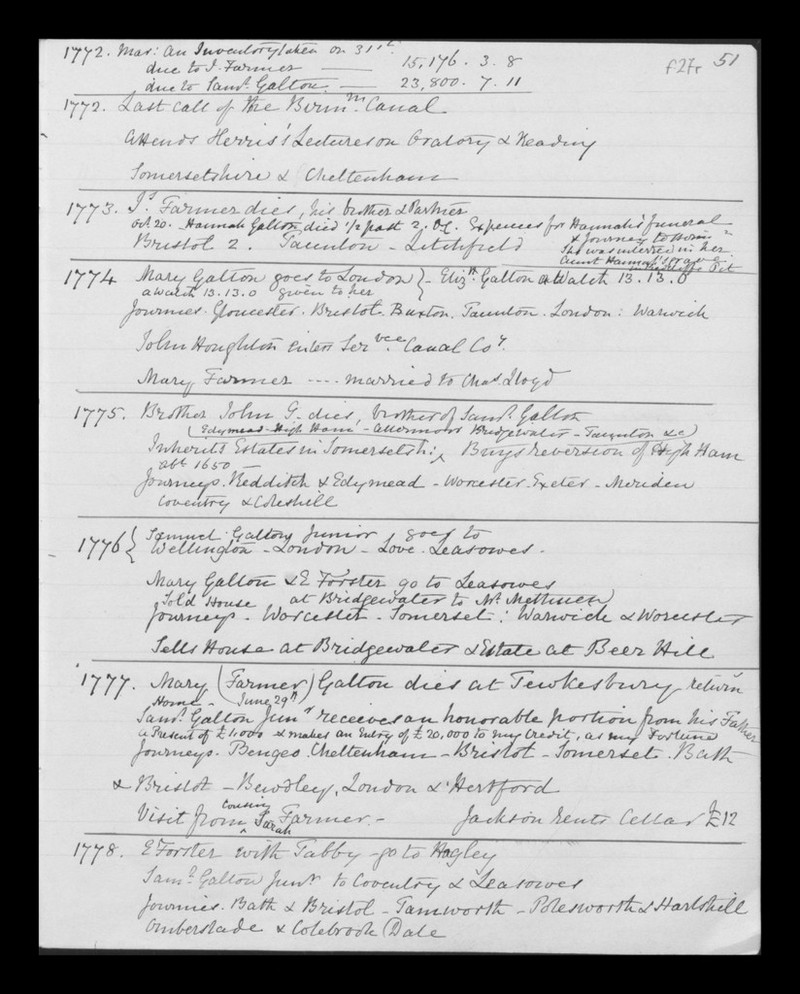 f27r 51
1772. Mar: an Inventory taken on 31st.
due to J. Farmer — 15,176 . 3 . 8
due to Saml. Galton — 23,800 . 7 . 11
1772. Last call of the Birmm. Canal
Attends Herris's Lectures on Oratory & Reading
Somersetshire & Cheltenham
1773. Js. Farmer dies, his brother & Partner
Oct 20. Hannah Galton died 1/2 past 2. Expences for Hannah's funeral
& Journey to
Bristol 2. Taunton - Litchfield
She was interred in her
Aunt Hannah's grave
Pit
1774 Mary Galton goes to London } - Elizth. Galton a Watch 13.13.0
a Watch 13.13.0 given to her
Journies. Gloucester. Bristol. Buxton. Taunton. London: Warwick
John Houghton enters Servce. Canal Coy.
Mary Farmer ---- married to Chas. Lloyd
1775. Brother John G. dies, brother of Saml. Galton
(Edymead - High Ham - Bridgewater - Taunton &c)
Inherits Estates in Somersetsh: Buys reversion of High Ham
abt 1650
Journeys. Redditch & Edymead - Worcester. Exeter - Meriden
Coventry & Coleshill
1776 { Samuel Galton Junior, goes to
Wellington - London - Love. Leasowes.
Mary Galton & E Forster go to Leasowes
Sold House at Bridgewater to Mr. Methuen
Journeys. Worcester. Somerset: Warwick & Worcester
Sells House at Bridgewater & Estate at Beer Hill
1777. Mary (Farmer) Galton dies at Tewkesbury returng
Home - June 29th
Saml. Galton Junr receives an honorable portion from his Father
a Present of £1,000 & makes an Entry of £20,000 to my Credit, as my Fortune
Journeys. Bengeo. Cheltenham - Bristol - Somerset. Bath
& Bristol - Bewdley, London & Hertford
Visit from cousin Sarah Farmer. - Jackson rents Cellar £12
1778. E Forster with Tabby - go to Hagley
Saml. Galton Junr to Coventry & Leasowes
Journies. Bath & Bristol - Tamworth - Polesworth & Hartshill
Umberslade & Colebrook Dale